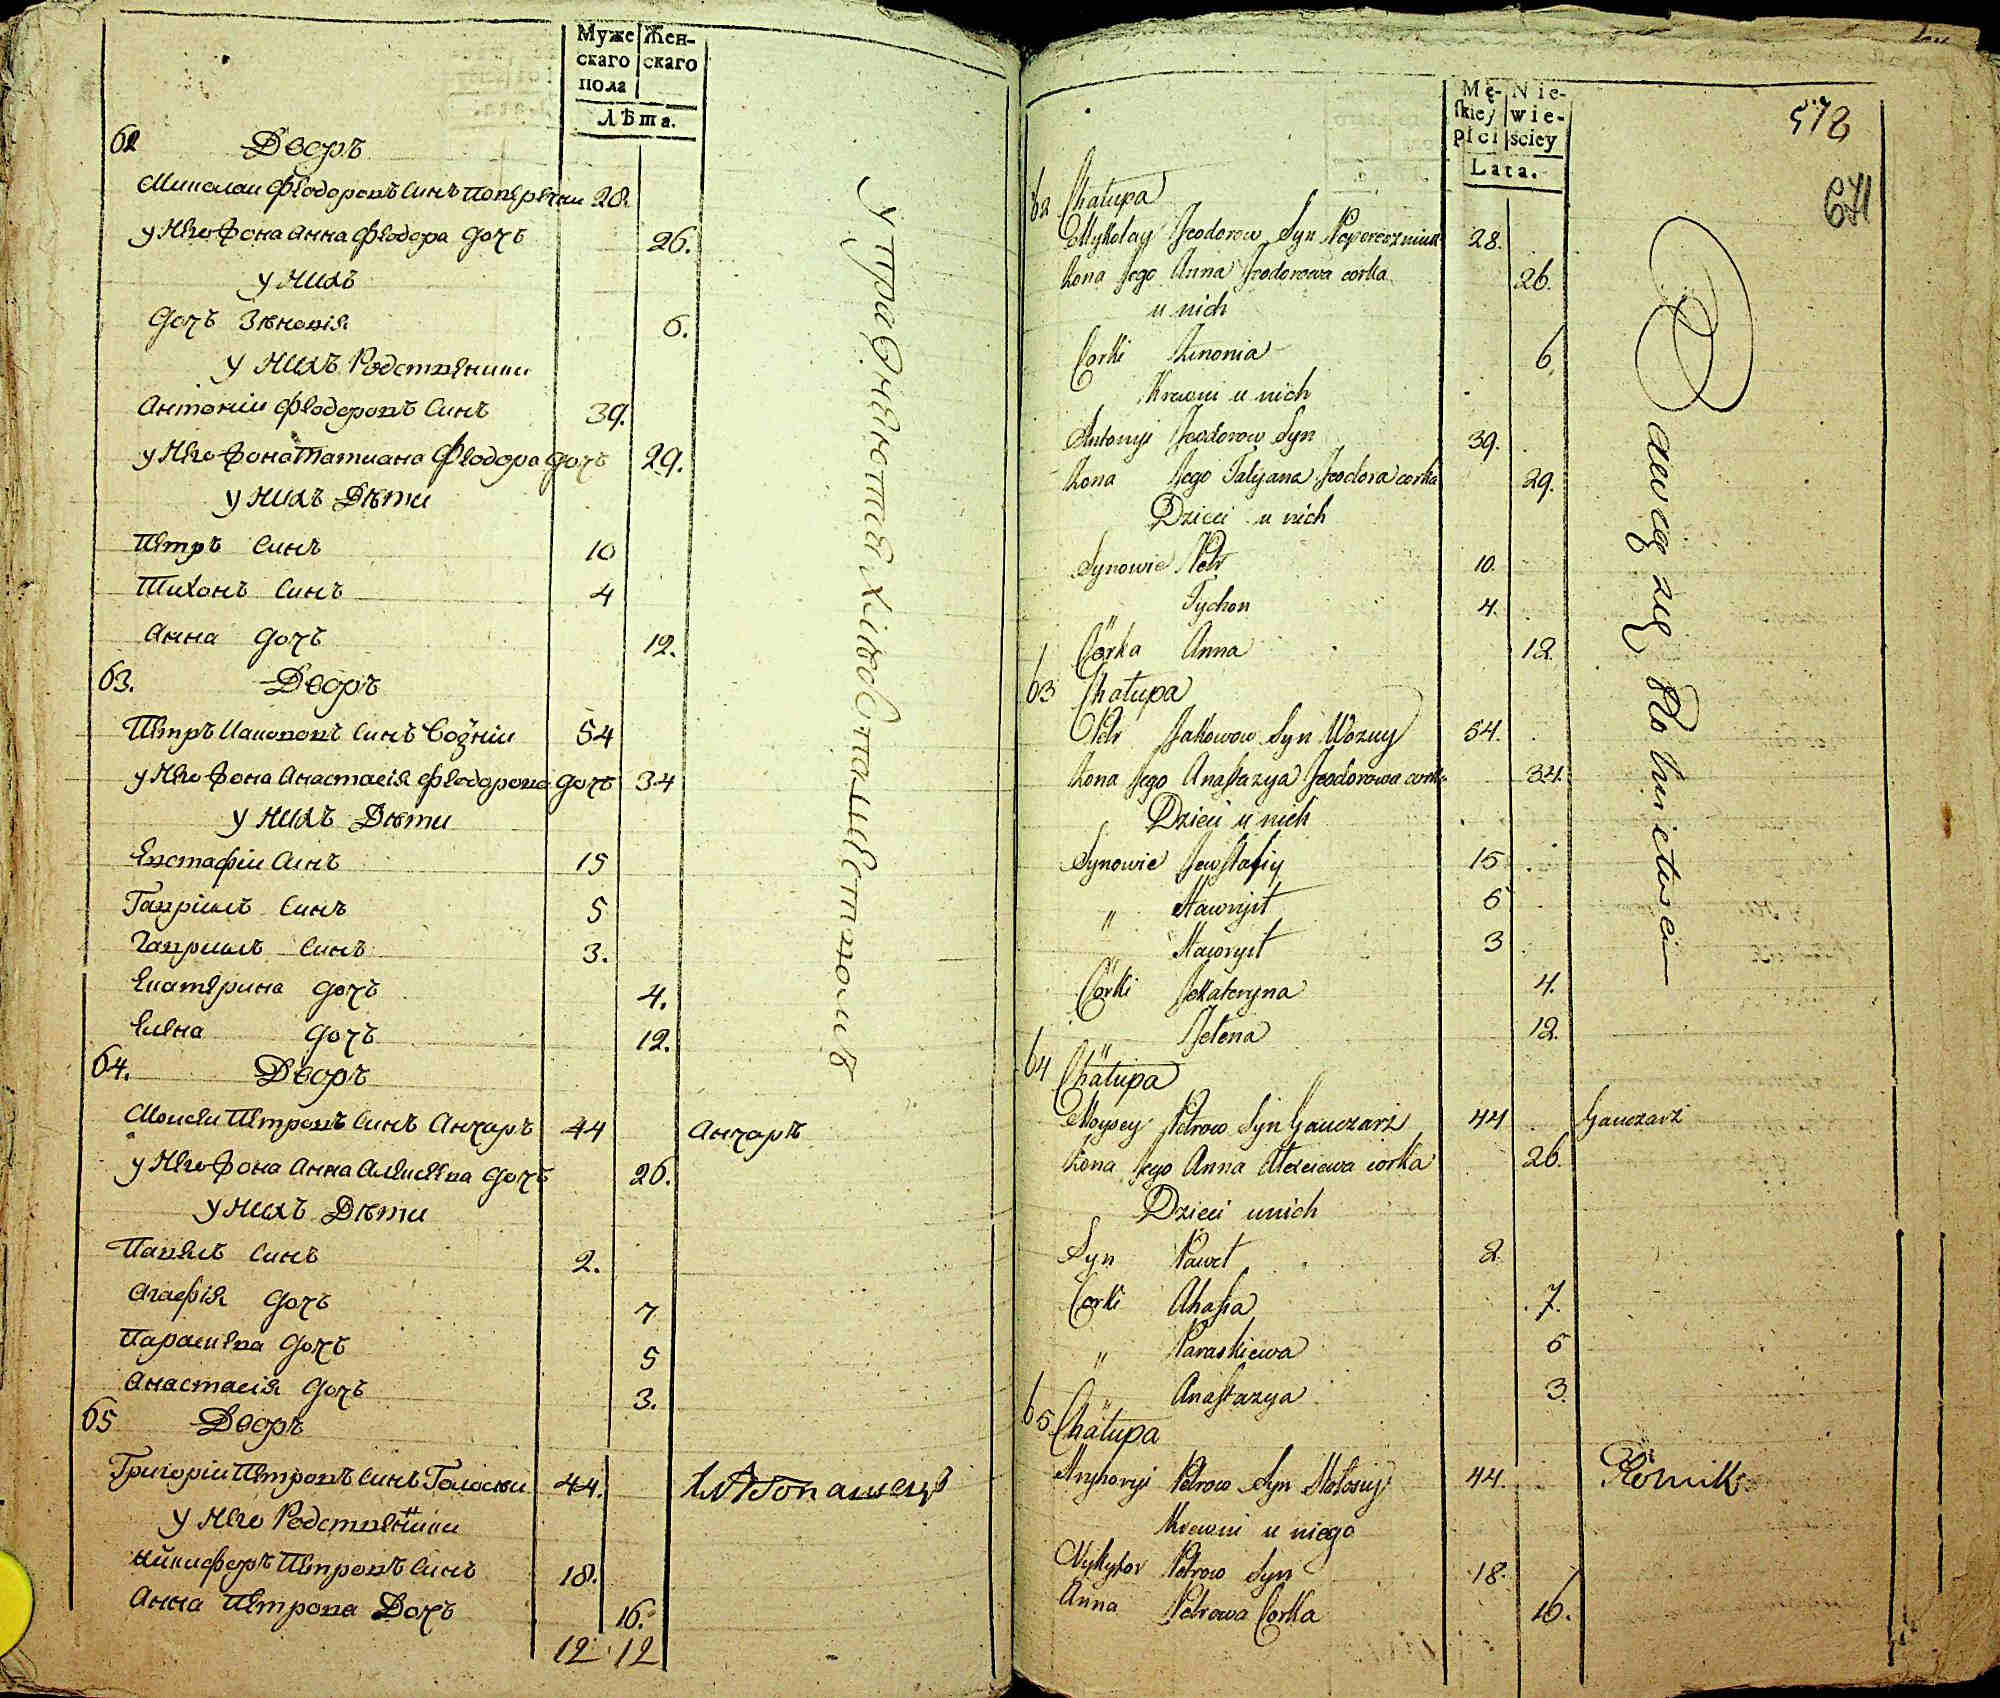 Муже
скаго
пола
Жен-
скаго
Лѣта.
62 Дворъ
Миколаи Феодоровъ Синъ Поперечни 28.
у Него Жона Анна Феодора Дочъ 26.
у Нихъ
Дочъ Зѣновія 6.
у Нихъ Родствениии
Антонии Феодоровъ Синъ 39.
у Него Жона Татиана Феодора Дочъ 29.
у Нихъ Дѣти
Петръ Синъ 10
Тихонъ Синъ 4
Анна Дочъ 12.
63. Дворъ
Петръ Иаковов Синъ Возніи 54
у Него Жона Анастасія Феодорова Дочъ 34
у Нихъ Дѣти
Евстафіи Синъ 15
Гавріилъ Синъ 5
Гавриилъ Синъ 3.
Екатерина Дочъ 4.
Елена Дочъ 12.
64. Дворъ
Моисеи Петровъ Синъ Анчаръ 44 Анчаръ
у Него Жона Анна Алексеева Дочъ 26.
у Нихъ Дѣти
Павелъ Синъ 2.
Агафія Дочъ 7
Параскева Дочъ 5
Анастасія Дочъ 3.
65 Дворъ
Григоріи Петровъ Синъ Голоски 44.
у Него Родственики
Никифоръ Петровъ Синъ 18.
Анна Петрова Дочъ 16.
12 12
упражняется хлѣбопашествомъ
Mę-
skiey
płci
Nie-
wie-
sciey
Lata.
573
671
62 Chałupa
Mykołay Jeodorow Syn Poperecznink 28.
Żona Jego Anna Jeodorowa corka 26.
u nich
Corki Zinonia 6.
Krewni u nich
Antonyi Jeodorow Syn 39.
Żona Jego Tatyana Jeodora corka 29.
Dzieci u nich
Synowie Petr 10.
Tychon 4.
Córka Anna 12
63 Chałupa
Petr Jakowow Syn Wozny 54.
Żona Jego Anastazya Jeodorowa cork 34.
Dzieci u nich
Synowie Jewstafiy 15
" Hawryił 5
Hawrył 3
Córki Jekateryna 4.
" Jelena 12.
64 Chałupa
Moysey Petrow Syn Hanczarz 44 Hanczarz
Żona Jego Anna Alexiewa corka 26.
Dzieci u nich
Syn Paweł 2
Corki Ahafia 7.
" Paraskiewa 5
" Anastazya 3.
65 Chałupa
Hryhoryi Petrow Syn Hołosiy 44. Rolnik
Krewni u niego
Nykyfor Petrow Syn 18.
Anna Petrowa Corka 16.
Bawią się Rolnictwem